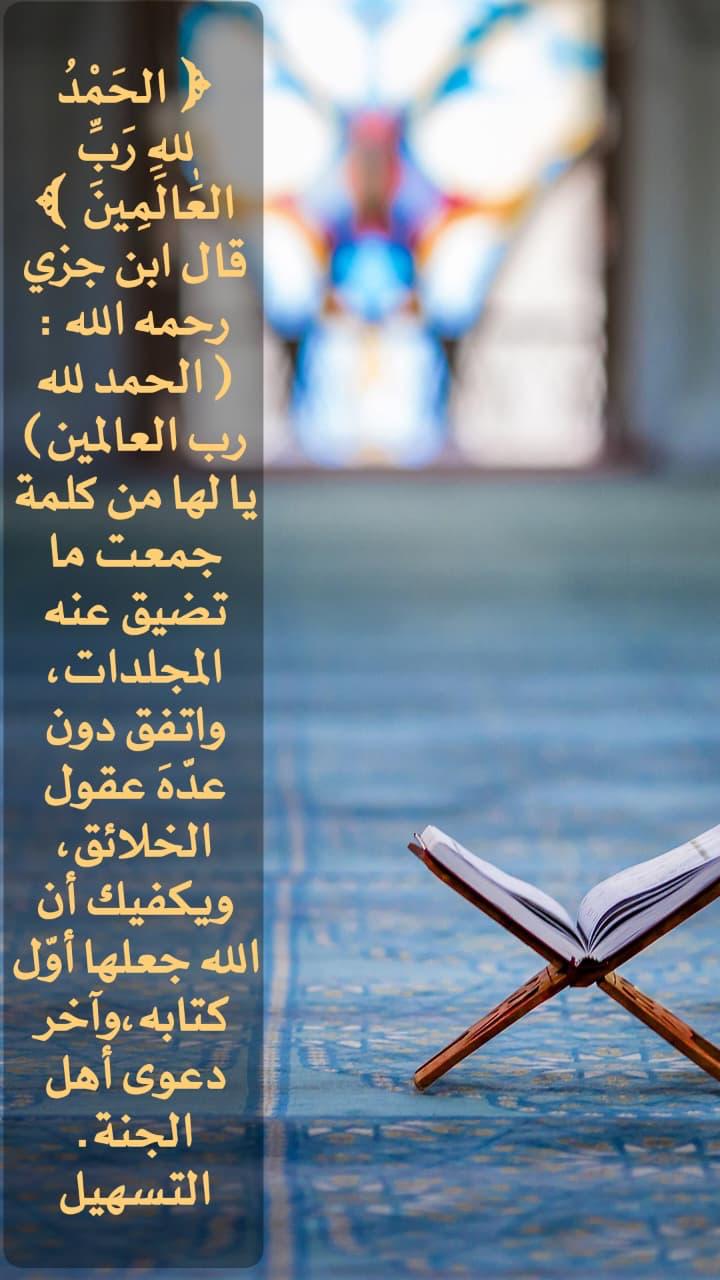 ﴿ الحَمْدُ
لِلهِ رَبِّ
العَالَمِينَ ﴾
قال ابن جزي
رحمه الله :
( الحمد لله
رب العالمين)
يا لها من كلمة
جمعت ما
تضيق عنه
المجلدات،
واتفق دون
عدّهَ عقول
الخلائق،
ويكفيك أن
الله جعلها أوّل
كتابه،وآخر
دعوى أهل
الجنة.
التسهيل